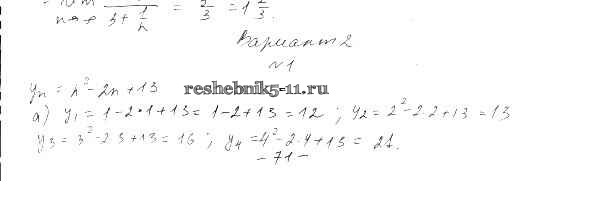 n→∞ 3 + 1/n = 2/3 = 1 2/3.
Вариант 2
№1
yn = n² - 2n + 13 reshebnik5-11.ru
а) y1 = 1 - 2·1 + 13 = 1 - 2 + 13 = 12 ; y2 = 2² - 2·2 + 13 = 13
y3 = 3² - 2·3 + 13 = 16 ; y4 = 4² - 2·4 + 13 = 21.
- 71 -